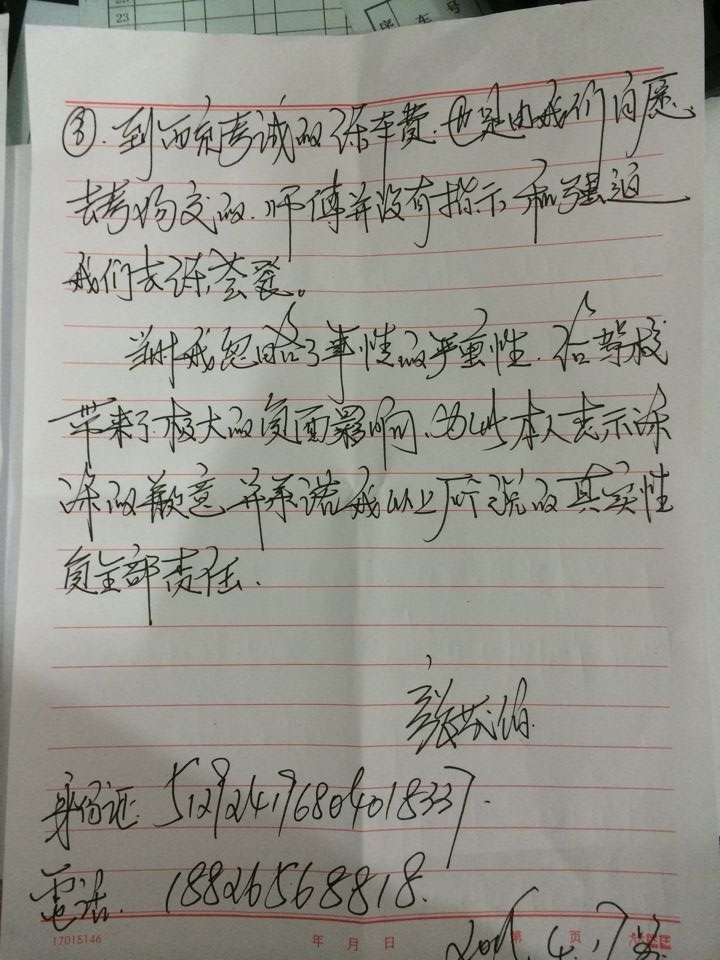 23
序 车 号
③.到西充考试的练车费.也是由我们自愿
去考场交的.师傅并没有指示和强迫
我们去练
当时我忽略了事性的严重性.给驾校
带来了极大的负面影响.为此本人表示深
深的歉意.并承诺我以上所说的真实性
负全部责任.
身份证:512924196804018337.
电话.18826568818.
17015146 年 月 日 第 页
4.17